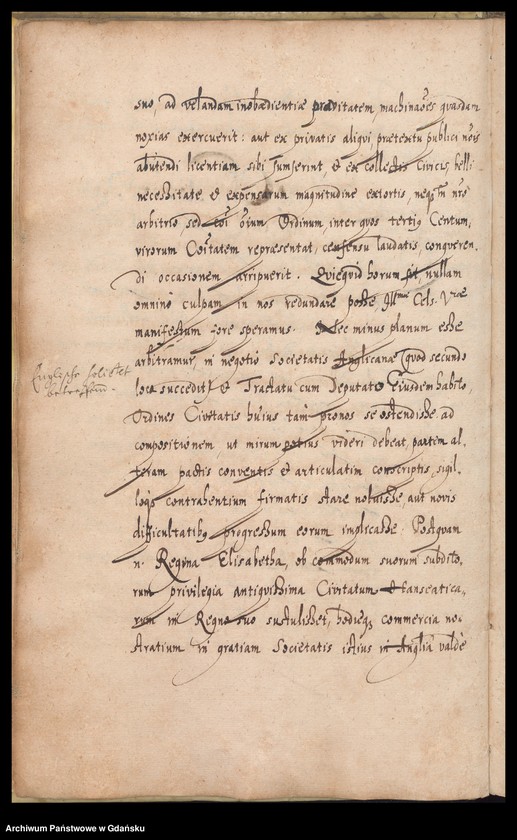 suo, ad velandam inobædientiæ pravitatem, machinaões quasdam
noxias exercuerit: aut ex privatis aliqui, prætextu publici nõis
abutendi licentiam sibi sumserint, & ex collectis Civicis, belli
necessitate, & expensarum magnitudine extortis, neq̃ nr̃o
arbitrio sed oĩum Ordinum, inter quos tertiq Centum,
virorum Cõitatem repræsentat, censensu laudatis, conqueren,
di occasionem arripuerit. Quicquid horum sit, nullam
omnino culpam in nos redundare posse, Illmæ Cels. Vræ
manifestum fore speramus. Nec minus planum esse
arbitramur, in negotio Societatis Anglicanæ (quod secundo
Englische Societet
loco succedit) & Tractatu cum Deputatis Eiusdem habito,
Ordines Civitatis huius tam pronos se ostendisse ad
compositionem, ut mirum potius videri debeat, partem al,
teram pactis conventis & articulatim conscriptis, sigil,
loq̃ contrahentium firmatis stare noluisse, aut novis
difficultatibq progressum eorum implicasse. Postquam
n. Regina Elisabetha, ob commodum suorum subdito,
rum privilegia antiquissima Civitatum Hanseatica,
rum in Regno suo sustulisset, hodieq commercia no,
stratium in gratiam Societatis istius in Anglia valdè